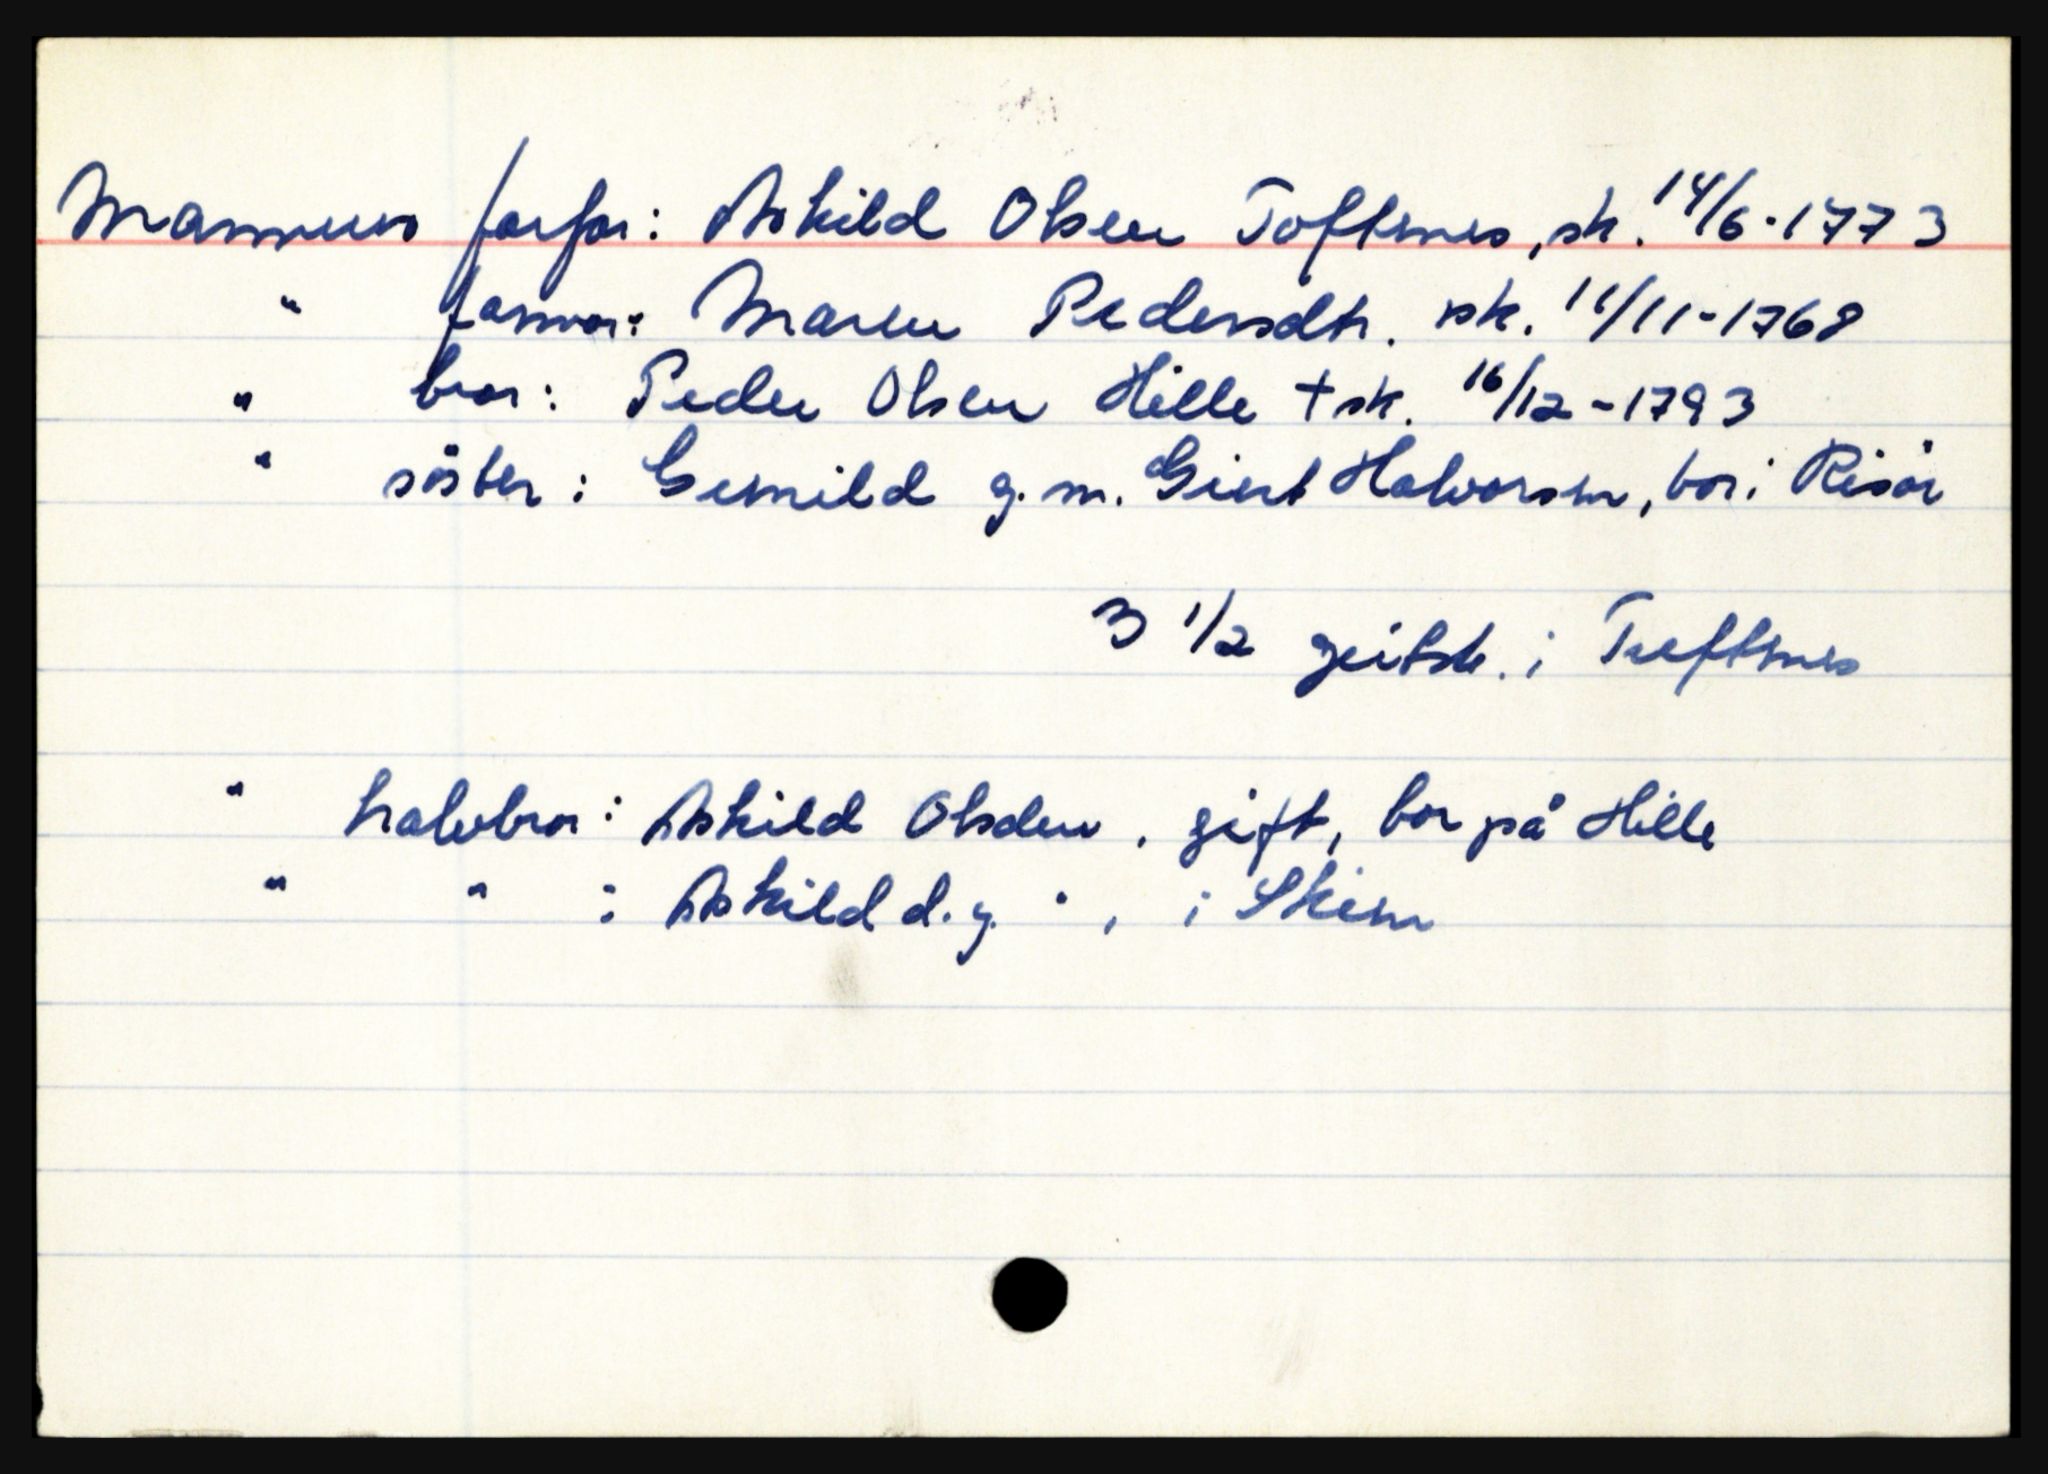 Mannens farfar: Askild Olsen Toftenes, sk. 14/6-1773
" farmor: Maren Pedersdtr. sk. 11/11-1768
" bror: Peder Olsen Hille + sk. 16/12-1793
" söster: Gunild g.m. Giert Halvorsen, bor i Risör
3 1/2 geitsk. i Tuftenes
" halvbror: Askild Olsden, gift, bor på Hille
" " : Askild d.y. ", i Skien